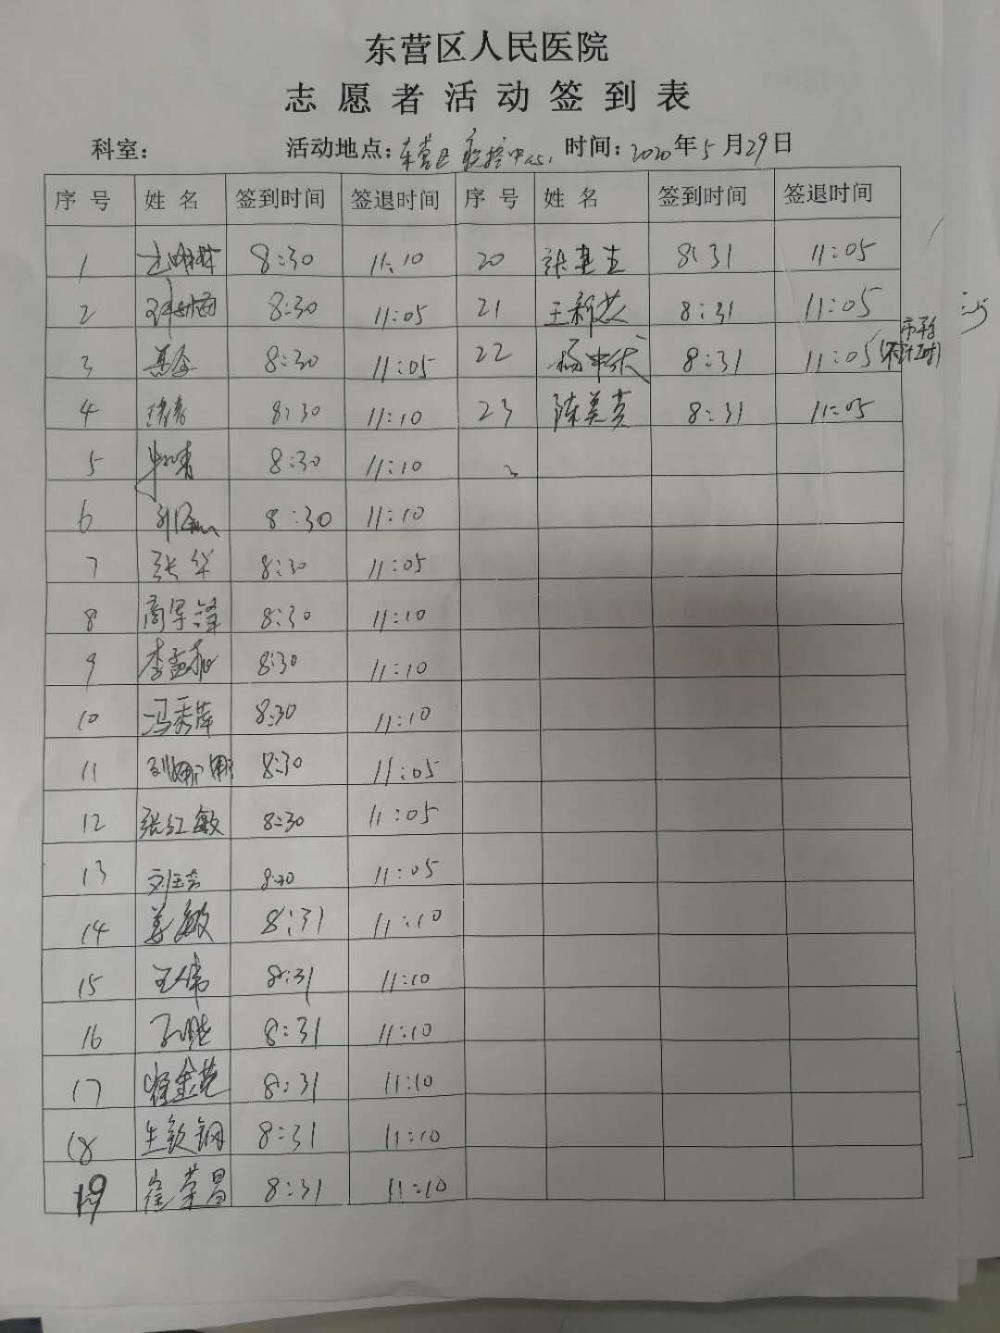 东营区人民医院
志愿者活动签到表
科室： 活动地点：东营区疾控中心 时间：2020年5月29日
序号 姓名 签到时间 签退时间 序号 姓名 签到时间 签退时间
1 8:30 11:10 20 8:31 11:05
2 8:30 11:05 21 王新芝 8:31 11:05
3 8:30 11:05 22 杨 8:31 11:05
4 8:30 11:10 23 陈美贞 8:31 11:05
5 8:30 11:10
6 8:30 11:10
7 张华 8:30 11:05
8 商军锋 8:30 11:10
9 李孟和 8:30 11:10
10 冯秀萍 8:30 11:10
11 刘娜娜 8:30 11:05
12 张红敏 8:30 11:05
13 8:30 11:05
14 姜敏 8:31 11:10
15 王伟 8:31 11:10
16 8:31 11:10
17 程金花 8:31 11:10
18 生钦钢 8:31 11:10
19 崔荣昌 8:31 11:10